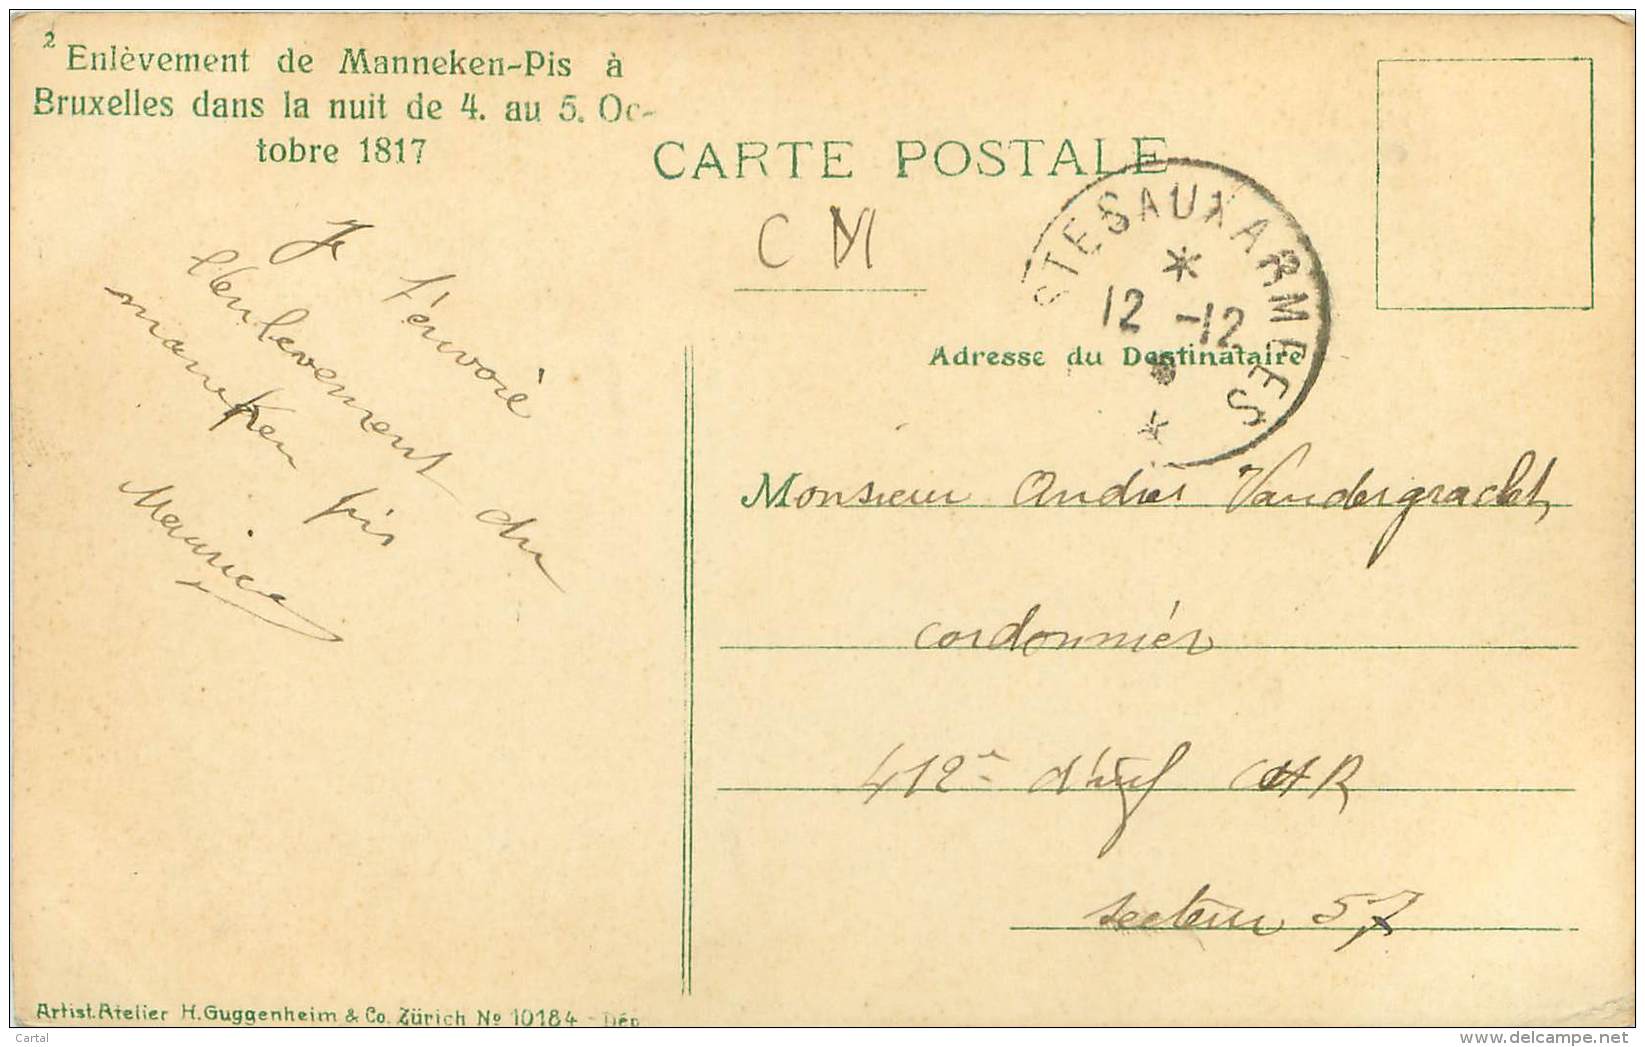 2
Enlèvement de Manneken-Pis à
Bruxelles dans la nuit de 4. au 5. Oc-
tobre 1817
CARTE POSTALE
C M
STES AUX ARMEES
12 -12
Adresse du Destinataire
Je t'envoie
l'enlevement du
manneken pis
Maurice
Monsieur Andries Vandergracht,
cordonnier
412e d'inf CHR
secteur 57
Artist. Atelier H. Guggenheim & Co. Zürich No 10184 - Dép
Cartal
www.delcampe.net